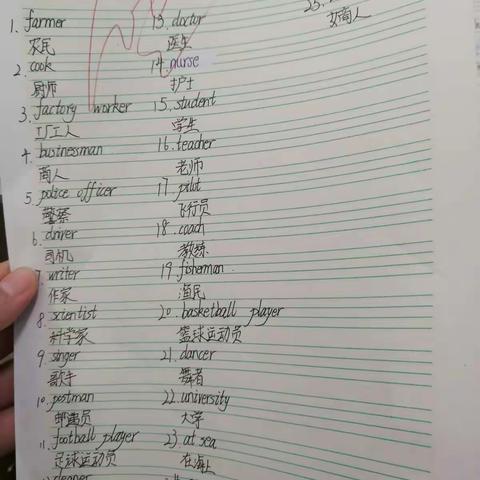 1. farmer
农民
2. cook
厨师
3. factory worker
工厂工人
4. businessman
商人
5. police officer
警察
6. driver
司机
7. writer
作家
8. scientist
科学家
9. singer
歌手
10. postman
邮递员
11. football player
足球运动员
cleaner
13. doctor
医生
14. nurse
护士
15. student
学生
16. teacher
老师
17. pilot
飞行员
18. coach
教练
19. fisherman
渔民
20. basketball player
篮球运动员
21. dancer
舞者
22. university
大学
23. at sea
在海上
25.
女商人